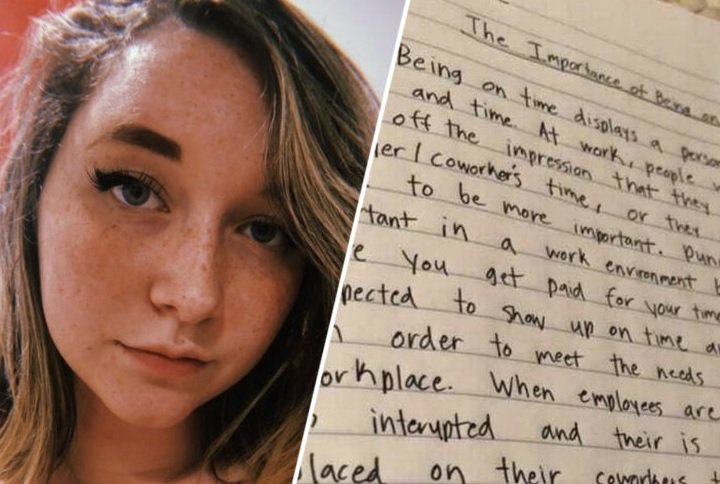 The Importance of Being on
Being on time displays a
and time. At work, people
off the impression that they
coworker's time, or they
to be more important.
in a work environment
you get paid for your time
to show up on time
order to meet the needs
When employees are
interupted and their is
on their coworkers